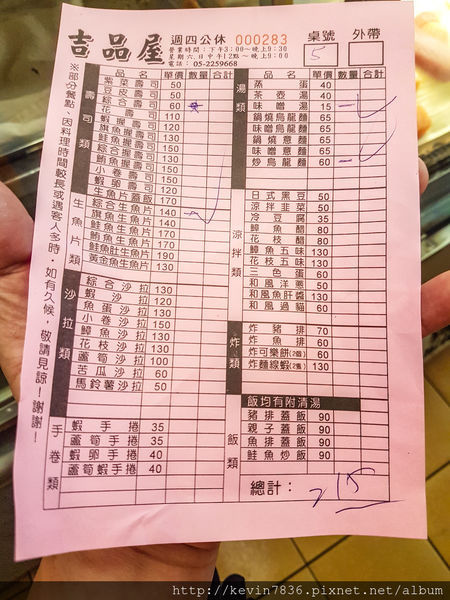 吉品屋 週四公休 000283 桌號 外帶
營業時間：下午3：00~晚上9：30
星期六.日中午12點~晚上9：00
電話： 05-2259668
5
※部分餐點，因料理時間較長或遇客人多時，如有久候，敬請見諒！謝謝！
品名 單價 數量 合計
壽司類
紫菜壽司 50
豆皮壽司 50
綜合壽司 60
花壽司 110
蝦握壽司 50
旗魚握壽司 150
鮭魚握壽司 150
綜合握壽司 150
鮪魚握壽司 150
小卷壽司 50
蝦卵壽司 50
生魚片蓋飯 170
生魚片類
綜合生魚片 140
旗魚生魚片 140
鮭魚生魚片 170
鮪魚生魚片 170
鮭魚肚生魚片 190
黃金魚生魚片 130
沙拉類
綜合沙拉 130
蝦沙拉 120
魚蛋沙拉 130
小卷沙拉 130
鱆魚沙拉 130
花枝沙拉 130
蘆筍沙拉 100
苦瓜沙拉 60
馬鈴薯沙拉 50
手卷類
蝦手捲 35
蘆筍手捲 35
蝦卵手捲 40
蘆筍蝦手捲 40
品名 單價 數量 合計
湯類
蒸蛋 40
茶壺湯 40
味噌湯 15
鍋燒烏龍麵 65
味噌烏龍麵 65
鍋燒意麵 65
味噌意麵 65
炒烏龍麵 60
涼拌類
日式黑豆 50
涼拌韭菜 50
冷豆腐 35
鱆魚醋 80
花枝醋 80
鱆魚五味 130
花枝五味 130
三色蛋 60
和風洋蔥 50
和風魚肝醬 130
和風過貓 60
炸類
炸豬排 70
炸魚排 60
炸可樂餅(2個) 60
炸麵線蝦(2隻) 130
飯均有附清湯
飯類
豬排蓋飯 90
親子蓋飯 90
魚排蓋飯 90
鮭魚炒飯 90
總計： 215
http://kevin7836.pixnet.net/album